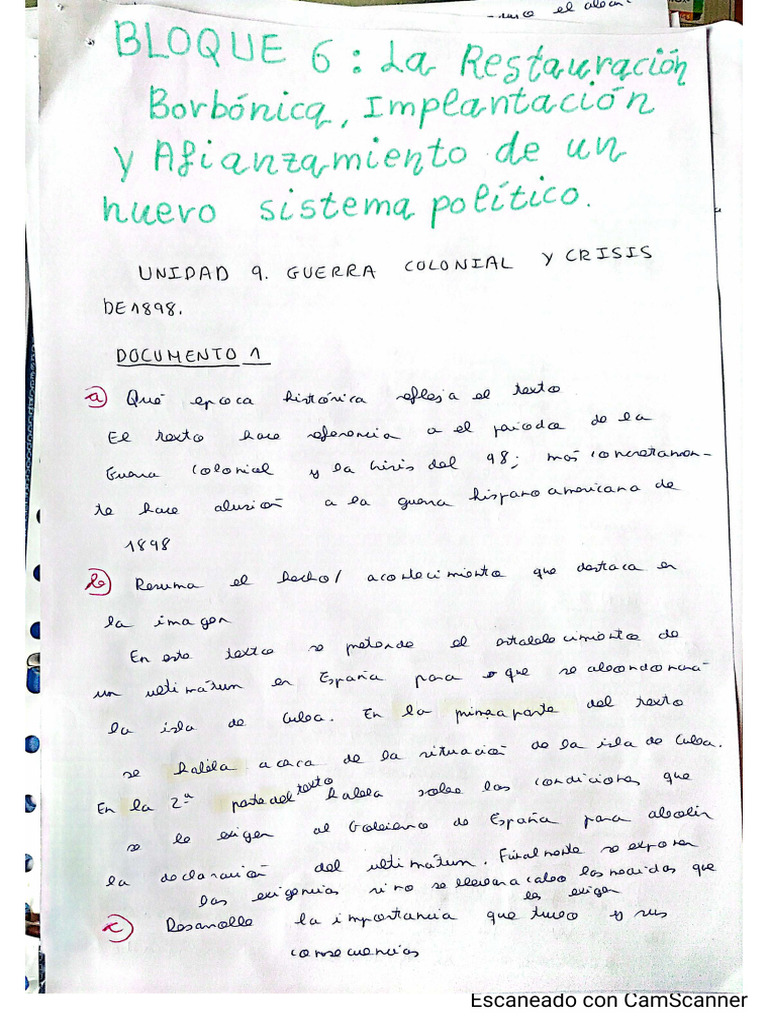 el
BLOQUE 6: La Restauración
Borbónica, Implantación
y Afianzamiento de un
nuevo sistema político.
UNIDAD 9. GUERRA COLONIAL Y CRISIS
DE 1898.
DOCUMENTO 1
a) Qué epoca histórica refleja el texto
El texto hace referencia a el periodo de la
Guerra Colonial y la Crisis del 98; más concretamen-
te hace alusión a la guerra hispanoamericana de
1898
b) Resuma el hecho/ acontecimiento que destaca en
la imagen
En este texto se pretende el establecimiento de
un ultimátum en España para que se abandonará
la isla de Cuba. En la primera parte del texto
se habla acerca de la situación de la isla de Cuba.
En la 2ª parte del texto habla sobre las condiciones que
se le exigen al Gobierno de España para abolir
la declaración del ultimátum. Finalmente se exponen
las exigencias si no se llevara a cabo las medidas que
les exigen
c) Desarrolle la importancia que tuvo y sus
consecuencias
Escaneado con CamScanner